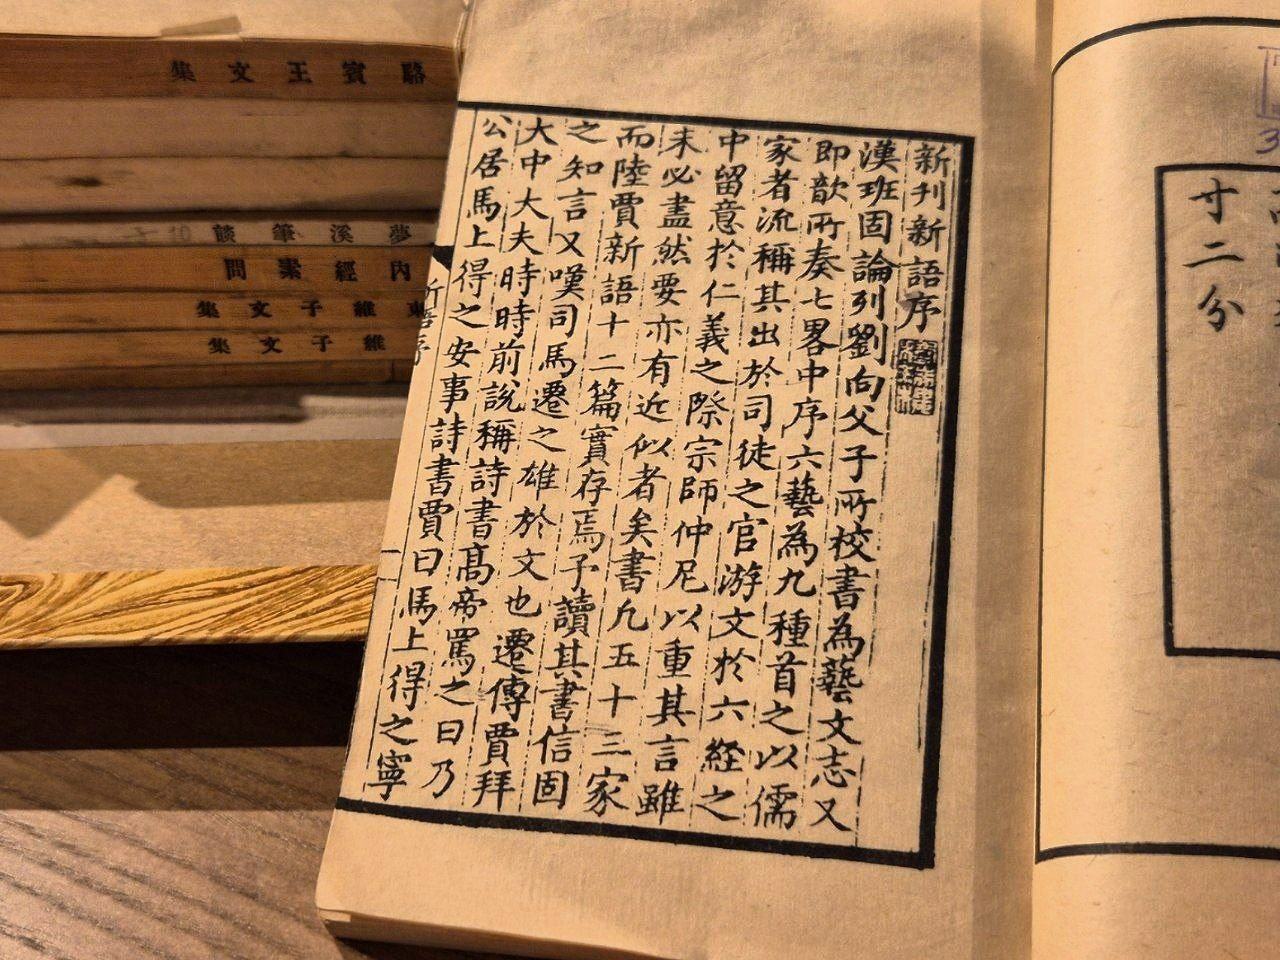 新刊新語序
漢班固論列劉向父子所校書為藝文志又
即歆所奏七畧中序六藝為九種首之以儒
家者流稱其出於司徒之官游文於六經之
中留意於仁義之際宗師仲尼以重其言雖
未必盡然要亦有近似者矣書凢五十三家
而陸賈新語十二篇實存焉予讀其書信固
之知言又嘆司馬遷之雄於文也遷傳賈拜
大中大夫時時前說稱詩書高帝罵之曰乃
公居馬上得之安事詩書賈曰馬上得之寧
寸二分
駱賓王文集
夢溪筆談
內經素問
東維子文集
維子文集